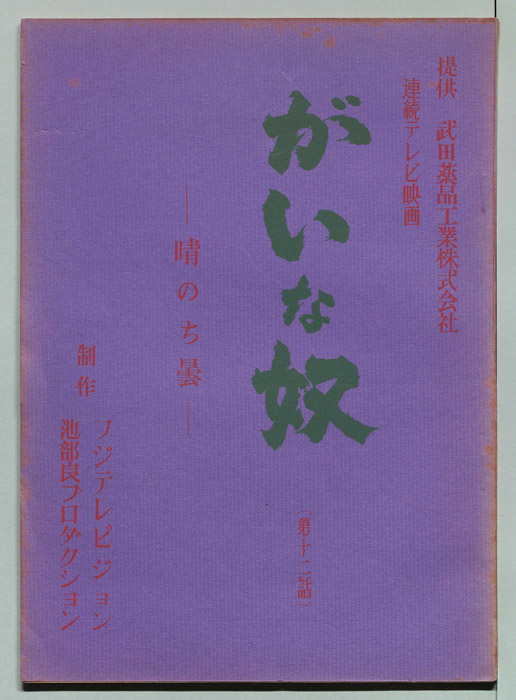 提供　武田薬品工業株式会社
連続テレビ映画
がいな奴
（第十二話）
―晴のち曇―
制作
フジテレビジョン
池部良プロダクション